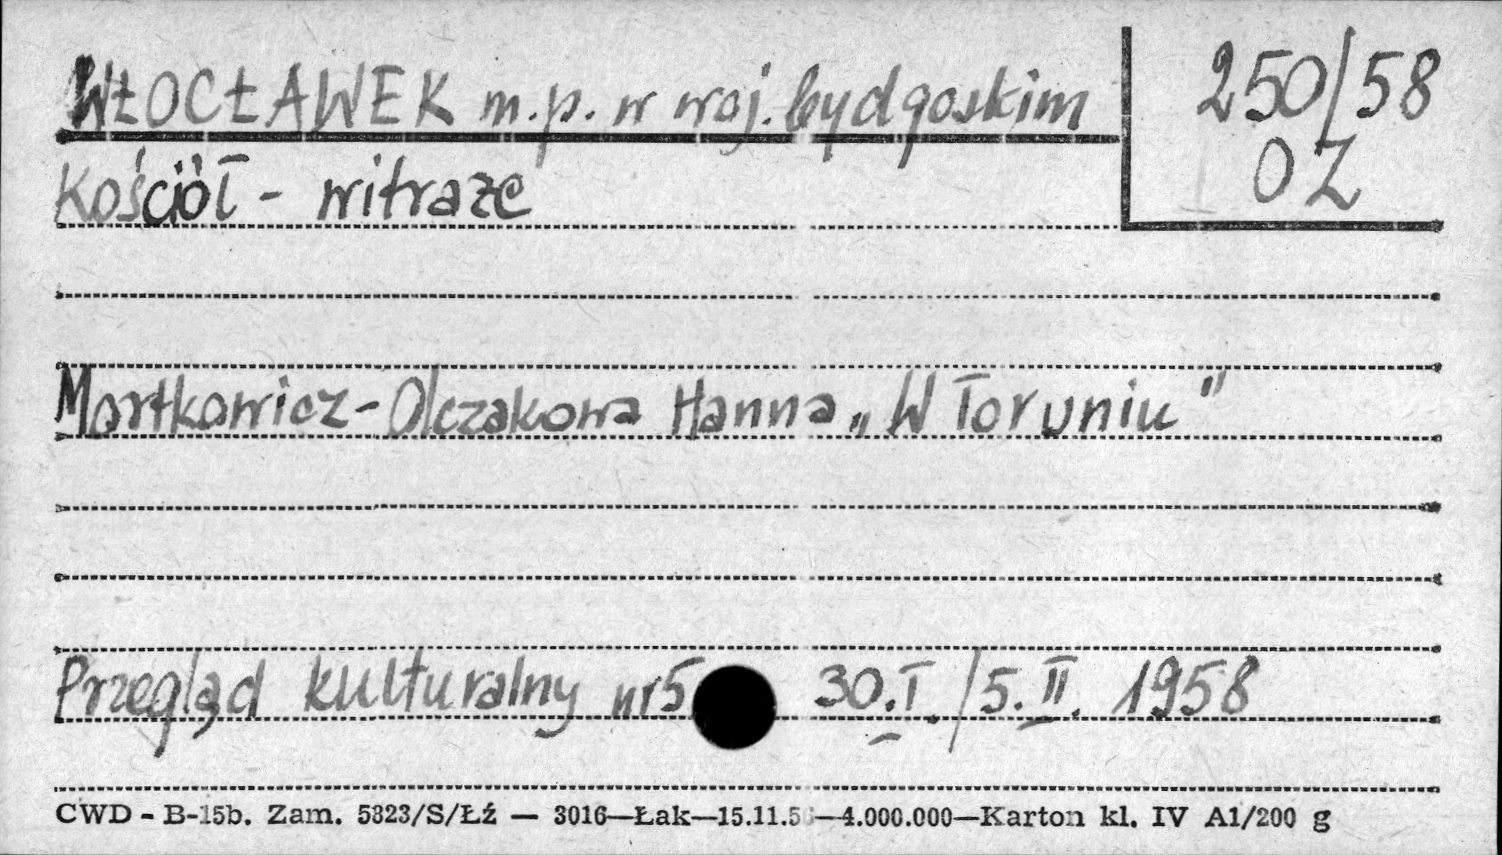 WŁOCŁAWEK m.p. w woj. bydgoskim
250/58
OZ
Kościół - witraże
Mortkowicz-Olczakowa Hanna „W Toruniu"
Przegląd kulturalny nr 5 30.I./5.II. 1958
CWD - B-15b. Zam. 5323/S/Łź — 3016—Łak—15.11.56—4.000.000—Karton kl. IV A1/200 g